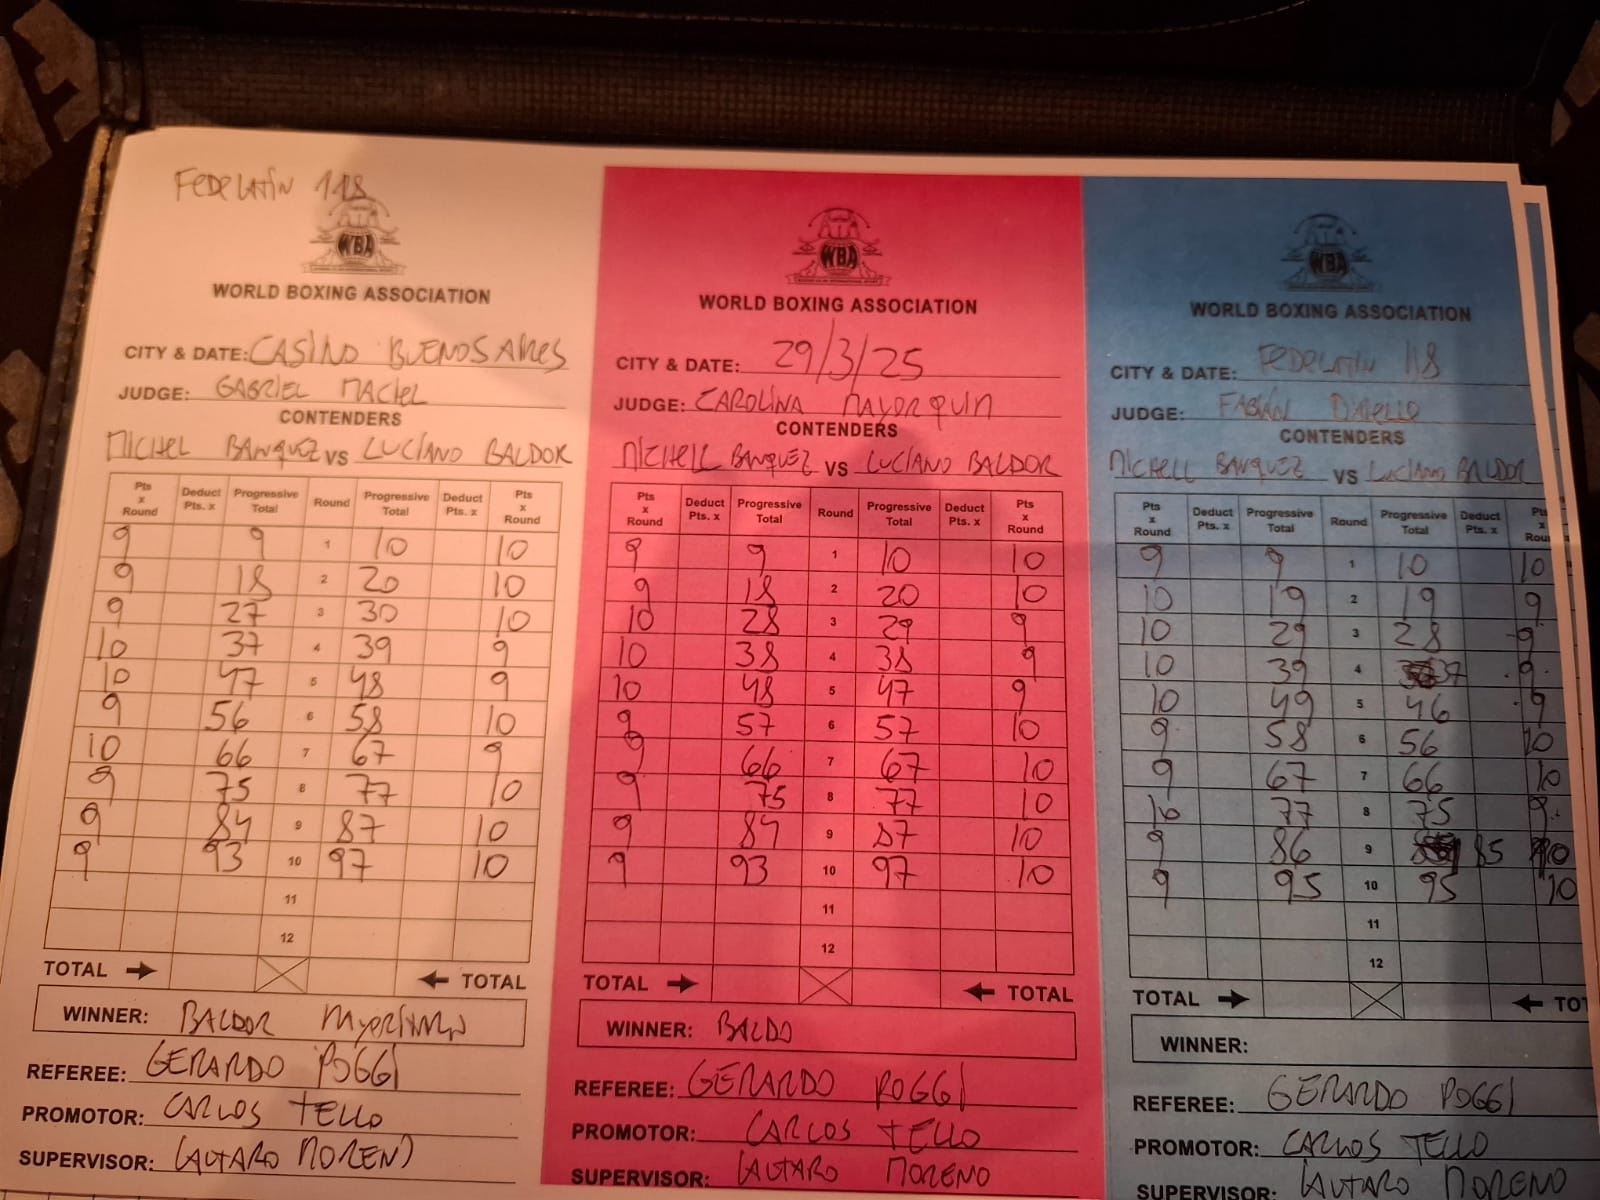 FEDELATIN 118
WBA
WORLD BOXING ASSOCIATION
CITY & DATE: CASINO BUENOS AIRES
JUDGE: GABRIEL MACIEL
CONTENDERS
MICHEL BANQUEZ VS LUCIANO BALDOR
Pts x Round Deduct Pts. x Progressive Total Round Progressive Total Deduct Pts. x Pts x Round
9 9 1 10 10
9 18 2 20 10
9 27 3 30 10
10 37 4 39 9
10 47 5 48 9
9 56 6 58 10
10 66 7 67 9
9 75 8 77 10
9 84 9 87 10
9 93 10 97 10
11
12
TOTAL TOTAL
WINNER: BALDOR
REFEREE: GERARDO POGGI
PROMOTOR: CARLOS TELLO
SUPERVISOR: LAUTARO MORENO
WBA
WORLD BOXING ASSOCIATION
CITY & DATE: 29/3/25
JUDGE: CAROLINA MAYORQUIN
CONTENDERS
MICHELL BANQUEZ VS LUCIANO BALDOR
Pts x Round Deduct Pts. x Progressive Total Round Progressive Total Deduct Pts. x Pts x Round
9 9 1 10 10
9 18 2 20 10
10 28 3 29 9
10 38 4 38 9
10 48 5 47 9
9 57 6 57 10
9 66 7 67 10
9 75 8 77 10
9 84 9 87 10
9 93 10 97 10
11
12
TOTAL TOTAL
WINNER: BALDO
REFEREE: GERARDO POGGI
PROMOTOR: CARLOS TELLO
SUPERVISOR: LAUTARO MORENO
WBA
WORLD BOXING ASSOCIATION
CITY & DATE: FEDELATIN 118
JUDGE: FABIAN
CONTENDERS
MICHELL BANQUEZ VS LUCIANO BALDOR
Pts x Round Deduct Pts. x Progressive Total Round Progressive Total Deduct Pts. x Pts x Rou
9 9 1 10 10
10 19 2 19 9
10 29 3 28 9
10 39 4 37 9
10 49 5 46 9
9 58 6 56 10
9 67 7 66 10
10 77 8 75 9
9 86 9 85 10
9 95 10 95 10
11
12
TOTAL TO
WINNER:
REFEREE: GERARDO POGGI
PROMOTOR: CARLOS TELLO
SUPERVISOR: LAUTARO MORENO